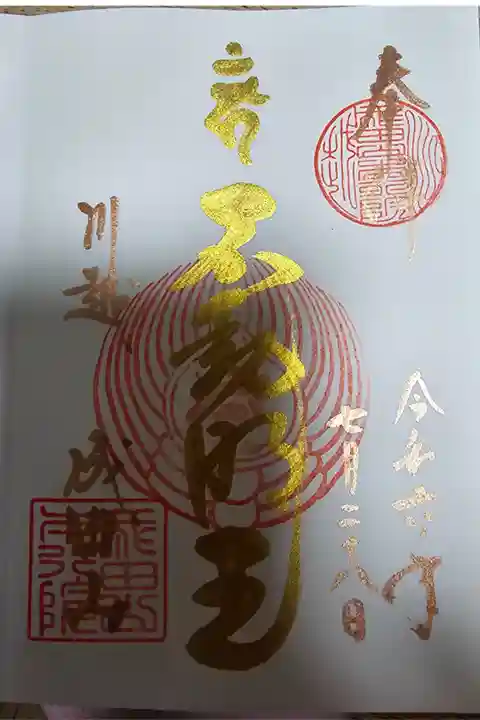 奉拝
令和六年
七月二十八日
不動明王
川越
成田山